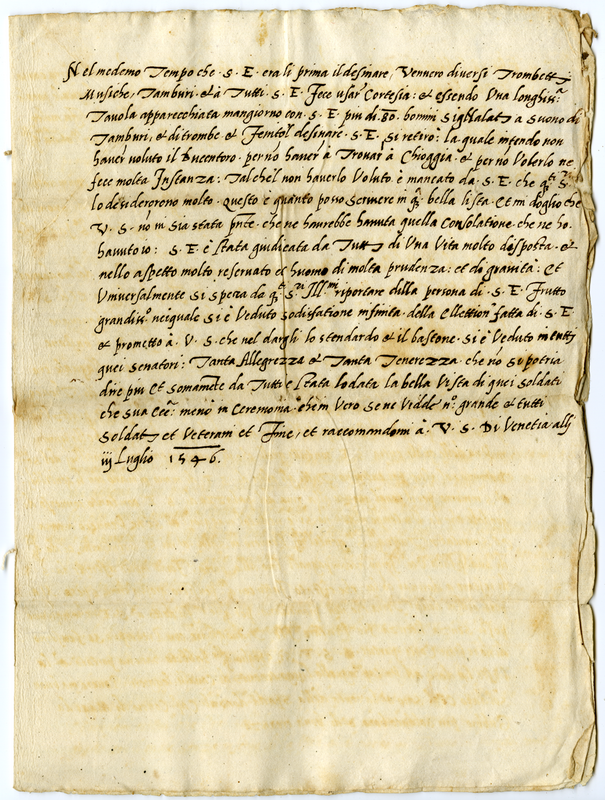 Nel medemo Tempo che · S · E · era li prima il desinare, Vennero diversi Trombetti
Musiche, Tamburi, et à Tutti · S · E · Fece usar Cortesia: et essendo Una longhiss.ᵃ
Tavola apparecchiata mangiorno con · S · E · piu di · 80 · homini a suono di
Tamburi, et di trombe et Fenito'l desinare · S · E · si retirò: la quale intendo non
haver voluto il Bucentoro · per nō haver à Trovar à Chioggia · et per nō Volerlo ne
fece molta Instanza: Tal che'l non haverlo Voluto è mancato da · S · E · che q.ᵗⁱ S.ʳⁱ
lo desidereron molto · Questo è quanto posso scrivere in q.ᵃ bella lista · Et mi doglio che
V · S · nō ni sia stata pn̄te · che ne havrebbe havuta quella Consolatione · che ne ho
havuto io: S · E · è stata giudicata da Tutti di Una Vita molto disposta · et
nello aspetto molto reservato et huomo di molta prudenza: et di gravità: Et
Universalmente si spera da q.ᵗⁱ S.ʳⁱ Ill.ᵐⁱ riportare dilla persona di · S · E · Frutto
grandiss.ᵒ nei quale si è Veduto sodisfatione infinita della Ellettion fatta di · S · E
et prometto à · V · S · che nel dargli lo stendardo et il bastone · si è Veduto in tutti
quei senatori: Tanta Allegrezza et Tanta Tenerezza che nō si potria
dire piu Et somamēte da Tutti è stata lodata la bella Vista di quei soldati
che sua Ecc.ᵃ menò in Ceremonia · che in Vero se ne Vidde n.ᵒ grande et tutti
Soldati et Veterani et Fine, et raccomandomi à · V · S · Di Venetia alli
iij Luglio 1546.